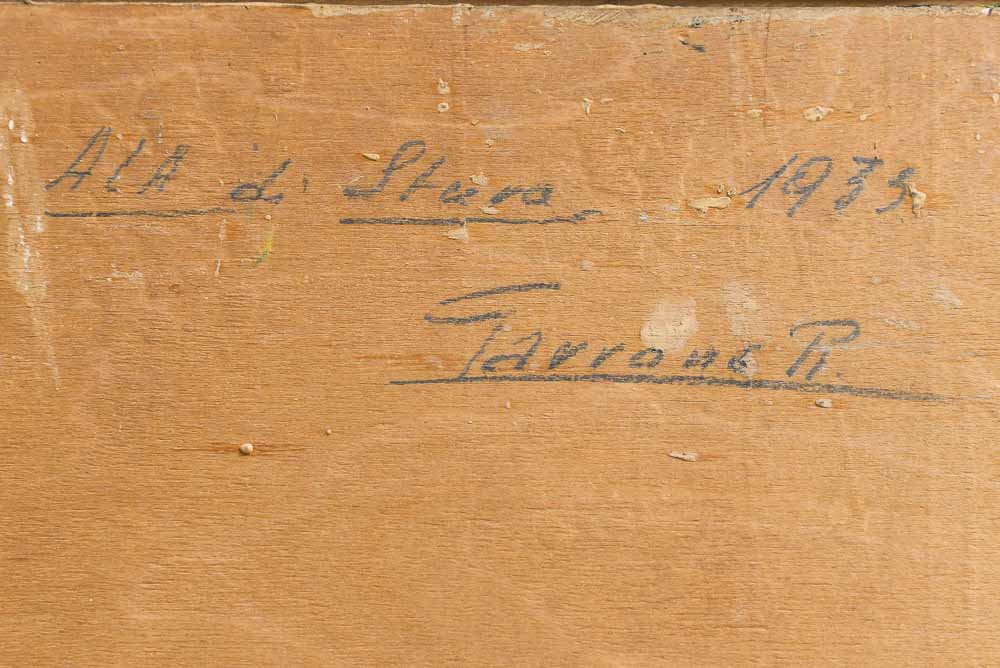 AlA di Stura 1935
Garrone R.